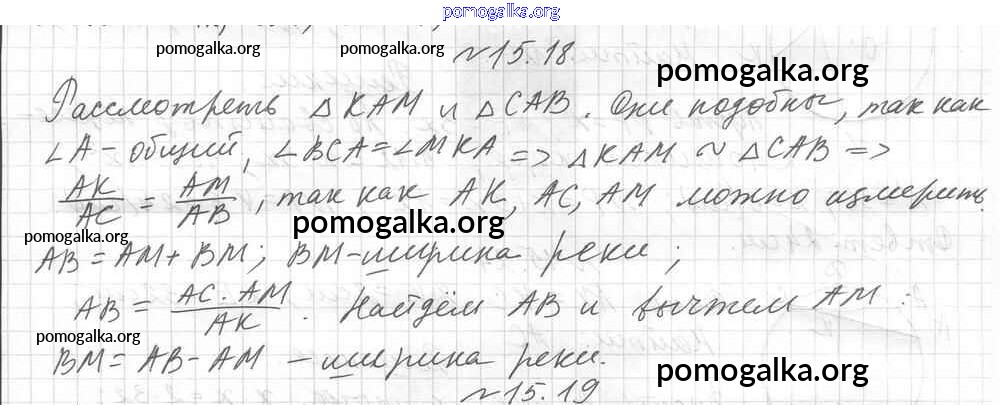 pomogalka.org
pomogalka.org pomogalka.org №15.18 pomogalka.org
Рассмотреть △KAM и △CAB. Они подобны, так как
∠A - общий, ∠BCA = ∠MKA => △KAM ~ △CAB =>
AK/AC = AM/AB, так как AK, AC, AM можно измерить.
pomogalka.org pomogalka.org
AB = AM + BM; BM - ширина реки;
AB = AC · AM/AK. Найдём AB и вычтем AM:
pomogalka.org
BM = AB - AM - ширина реки.
pomogalka.org
№15.19